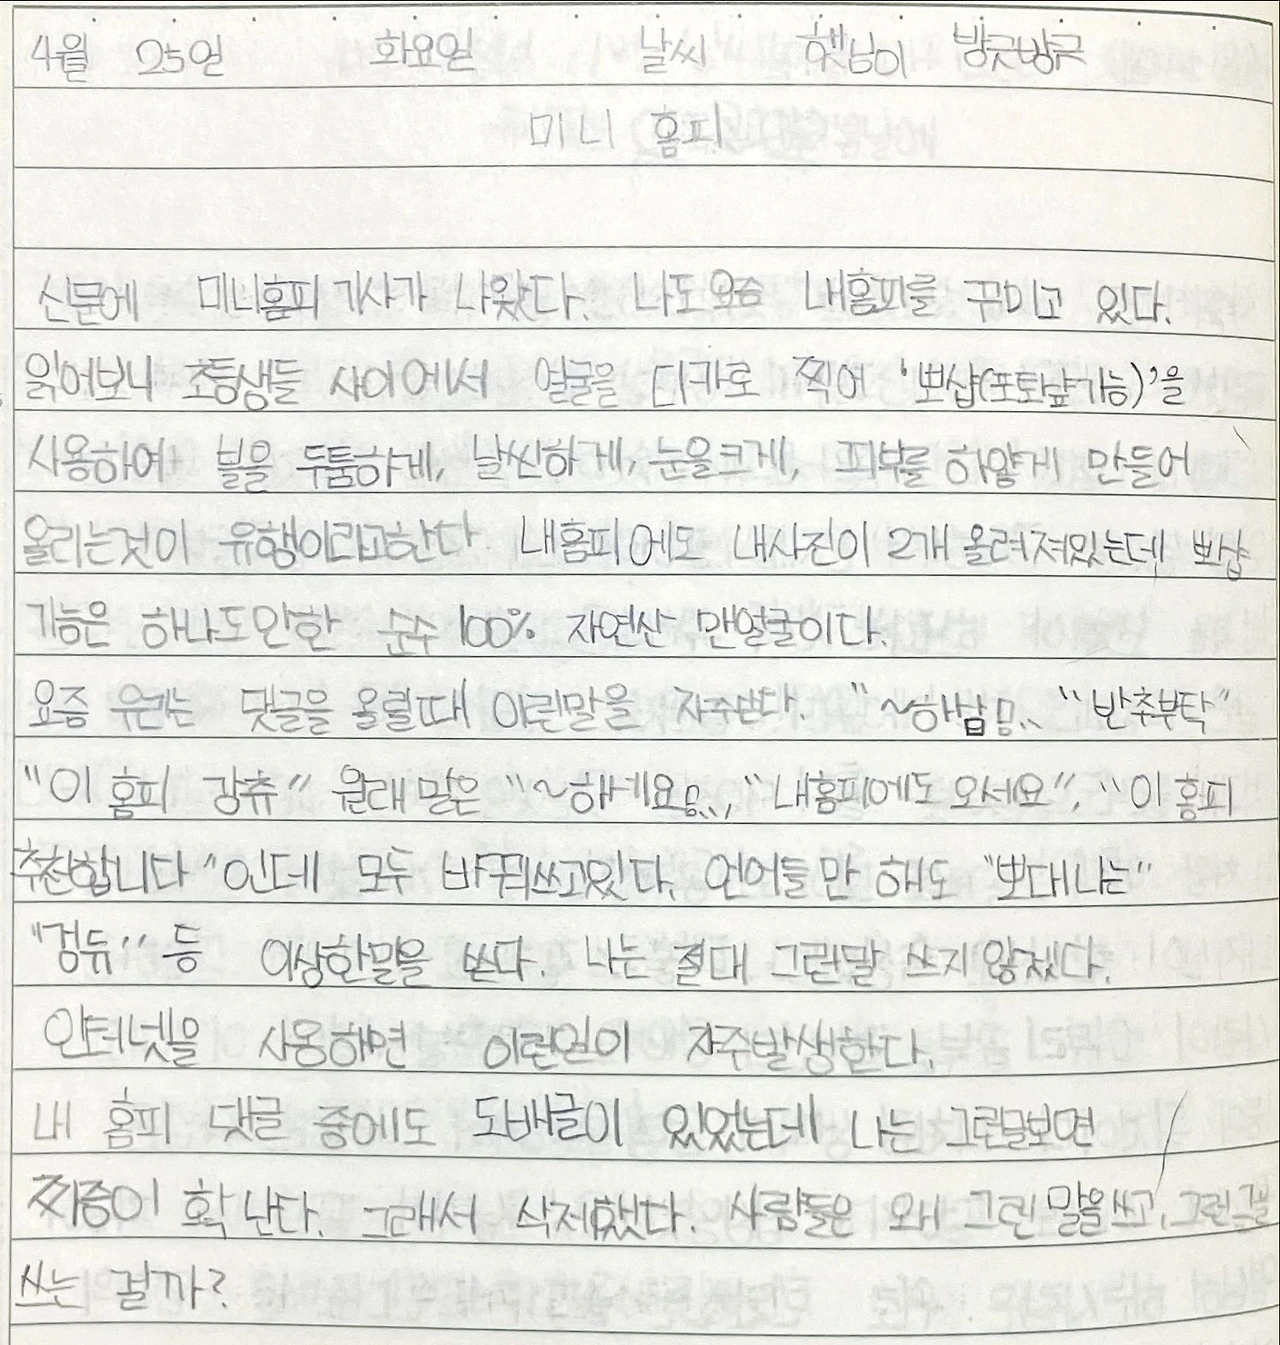 4월 25일 화요일 날씨 햇님이 방긋방긋
미니 홈피
신문에 미니홈피 기사가 나왔다. 나도 요즘 내홈피를 꾸미고 있다.
읽어보니 초등생들 사이에서 얼굴을 디카로 찍어 '뽀샵(포토샾기능)'을
사용하여 볼을 두툼하게, 날씬하게, 눈을크게, 피부를 하얗게 만들어
올리는것이 유행이라고한다. 내홈피에도 내사진이 2개 올려져있는데 뽀샾
기능은 하나도안한 순수 100% 자연산 맨얼굴이다.
요즘 우리는 댓글을 올릴때 이런말을 자주쓴다. "~하삼" "반추부탁"
"이 홈피 강츄" 원래말은 "~하세요", "내홈피에도 오세요", "이 홈피
추천합니다"인데 모두 바꿔쓰고있다. 언어들만 해도 "뽀대나는"
"겅듀" 등 이상한말을 쓴다. 나는 절대 그런말 쓰지않겠다.
인터넷을 사용하면 이런일이 자주발생한다.
내 홈피 댓글 중에도 도배글이 있었는데 나는 그런글보면
찌증이 확 난다. 그래서 삭제했다. 사람들은 왜 그런 말을쓰고, 그런글을
쓰는 걸까?